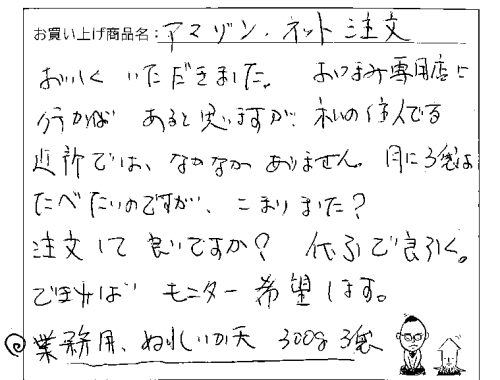 お買い上げ商品名：アマゾン・ネット注文
おいしくいただきました。おつまみ専用店に
行かばあると思いますが、私の住んでる
近所では、なかなかありません。月に3袋は
たべたいのですが、こまりました？
注文して良いですか？代引で良引く。
できればモニター希望します。
◎業務用、ぬれいか天 300g 3袋